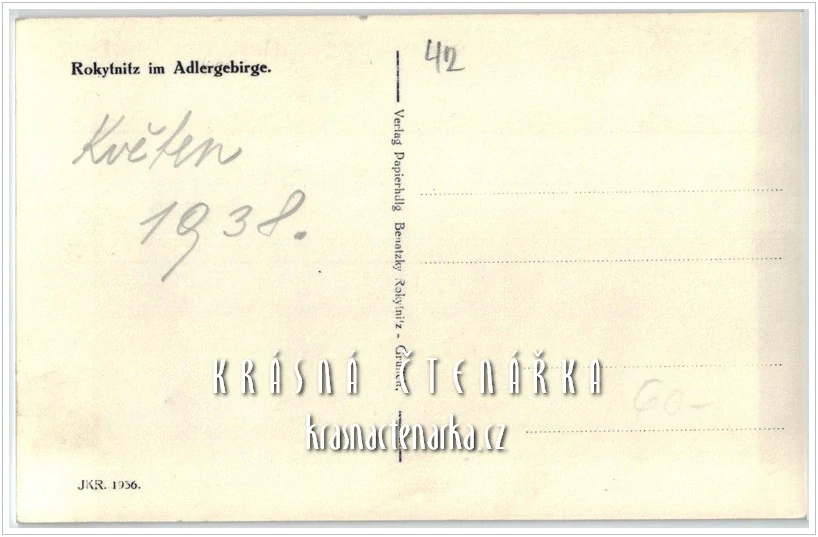 Rokytnitz im Adlergebirge.
42
Květen
1938.
Verlag Papierhdlg Benatzky Rokytnitz - Grulich.
KRÁSNÁ ČTENÁŘKA
krasnactenarka.cz
60-
JKR. 1936.